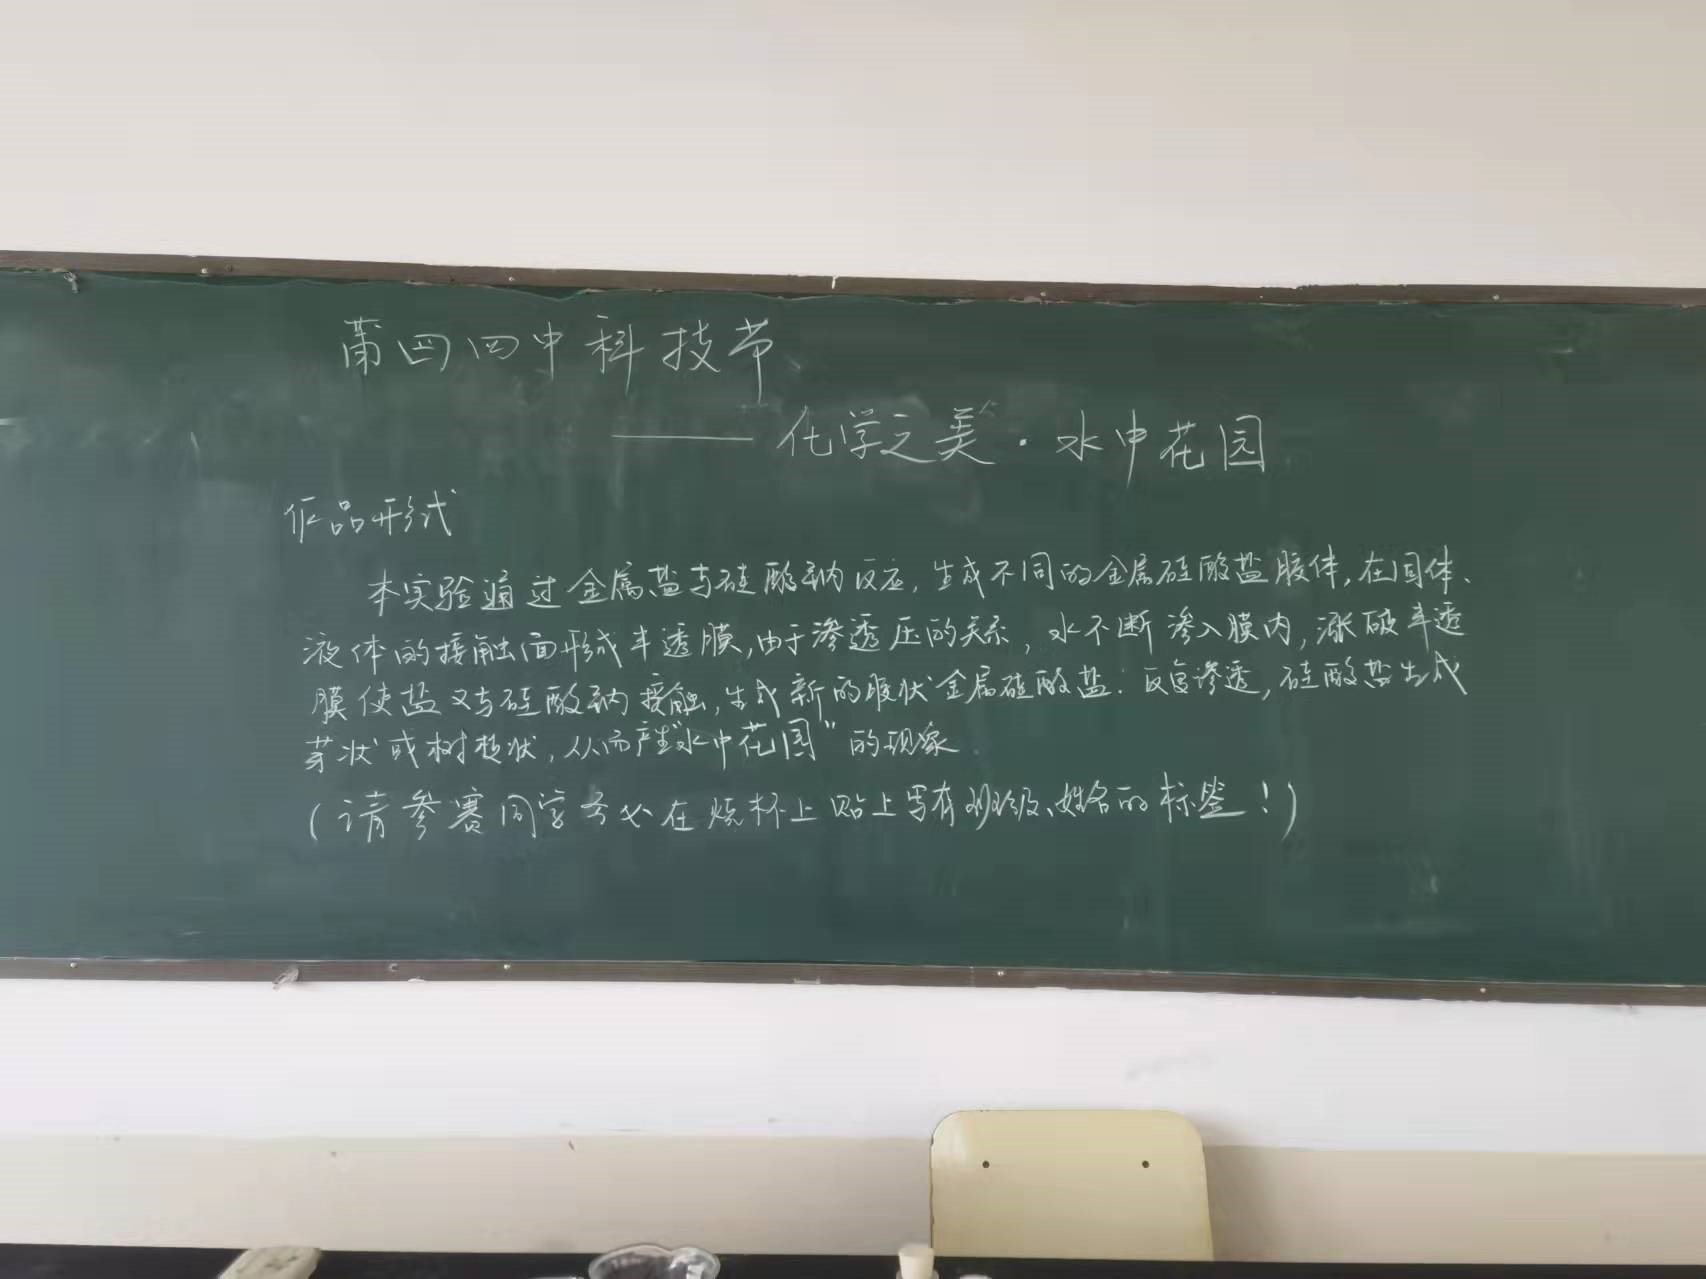 莆田四中科技节
——化学之美·水中花园
作品形式
本实验通过金属盐与硅酸钠反应，生成不同的金属硅酸盐胶体，在固体、
液体的接触面形成半透膜，由于渗透压的关系，水不断渗入膜内，涨破半透
膜使盐又与硅酸钠接触，生成新的胶状金属硅酸盐：反复渗透，硅酸盐生成
芽状或树枝状，从而产生“水中花园”的现象.
（请参赛同学务必在烧杯上贴上写有班级、姓名的标签！）